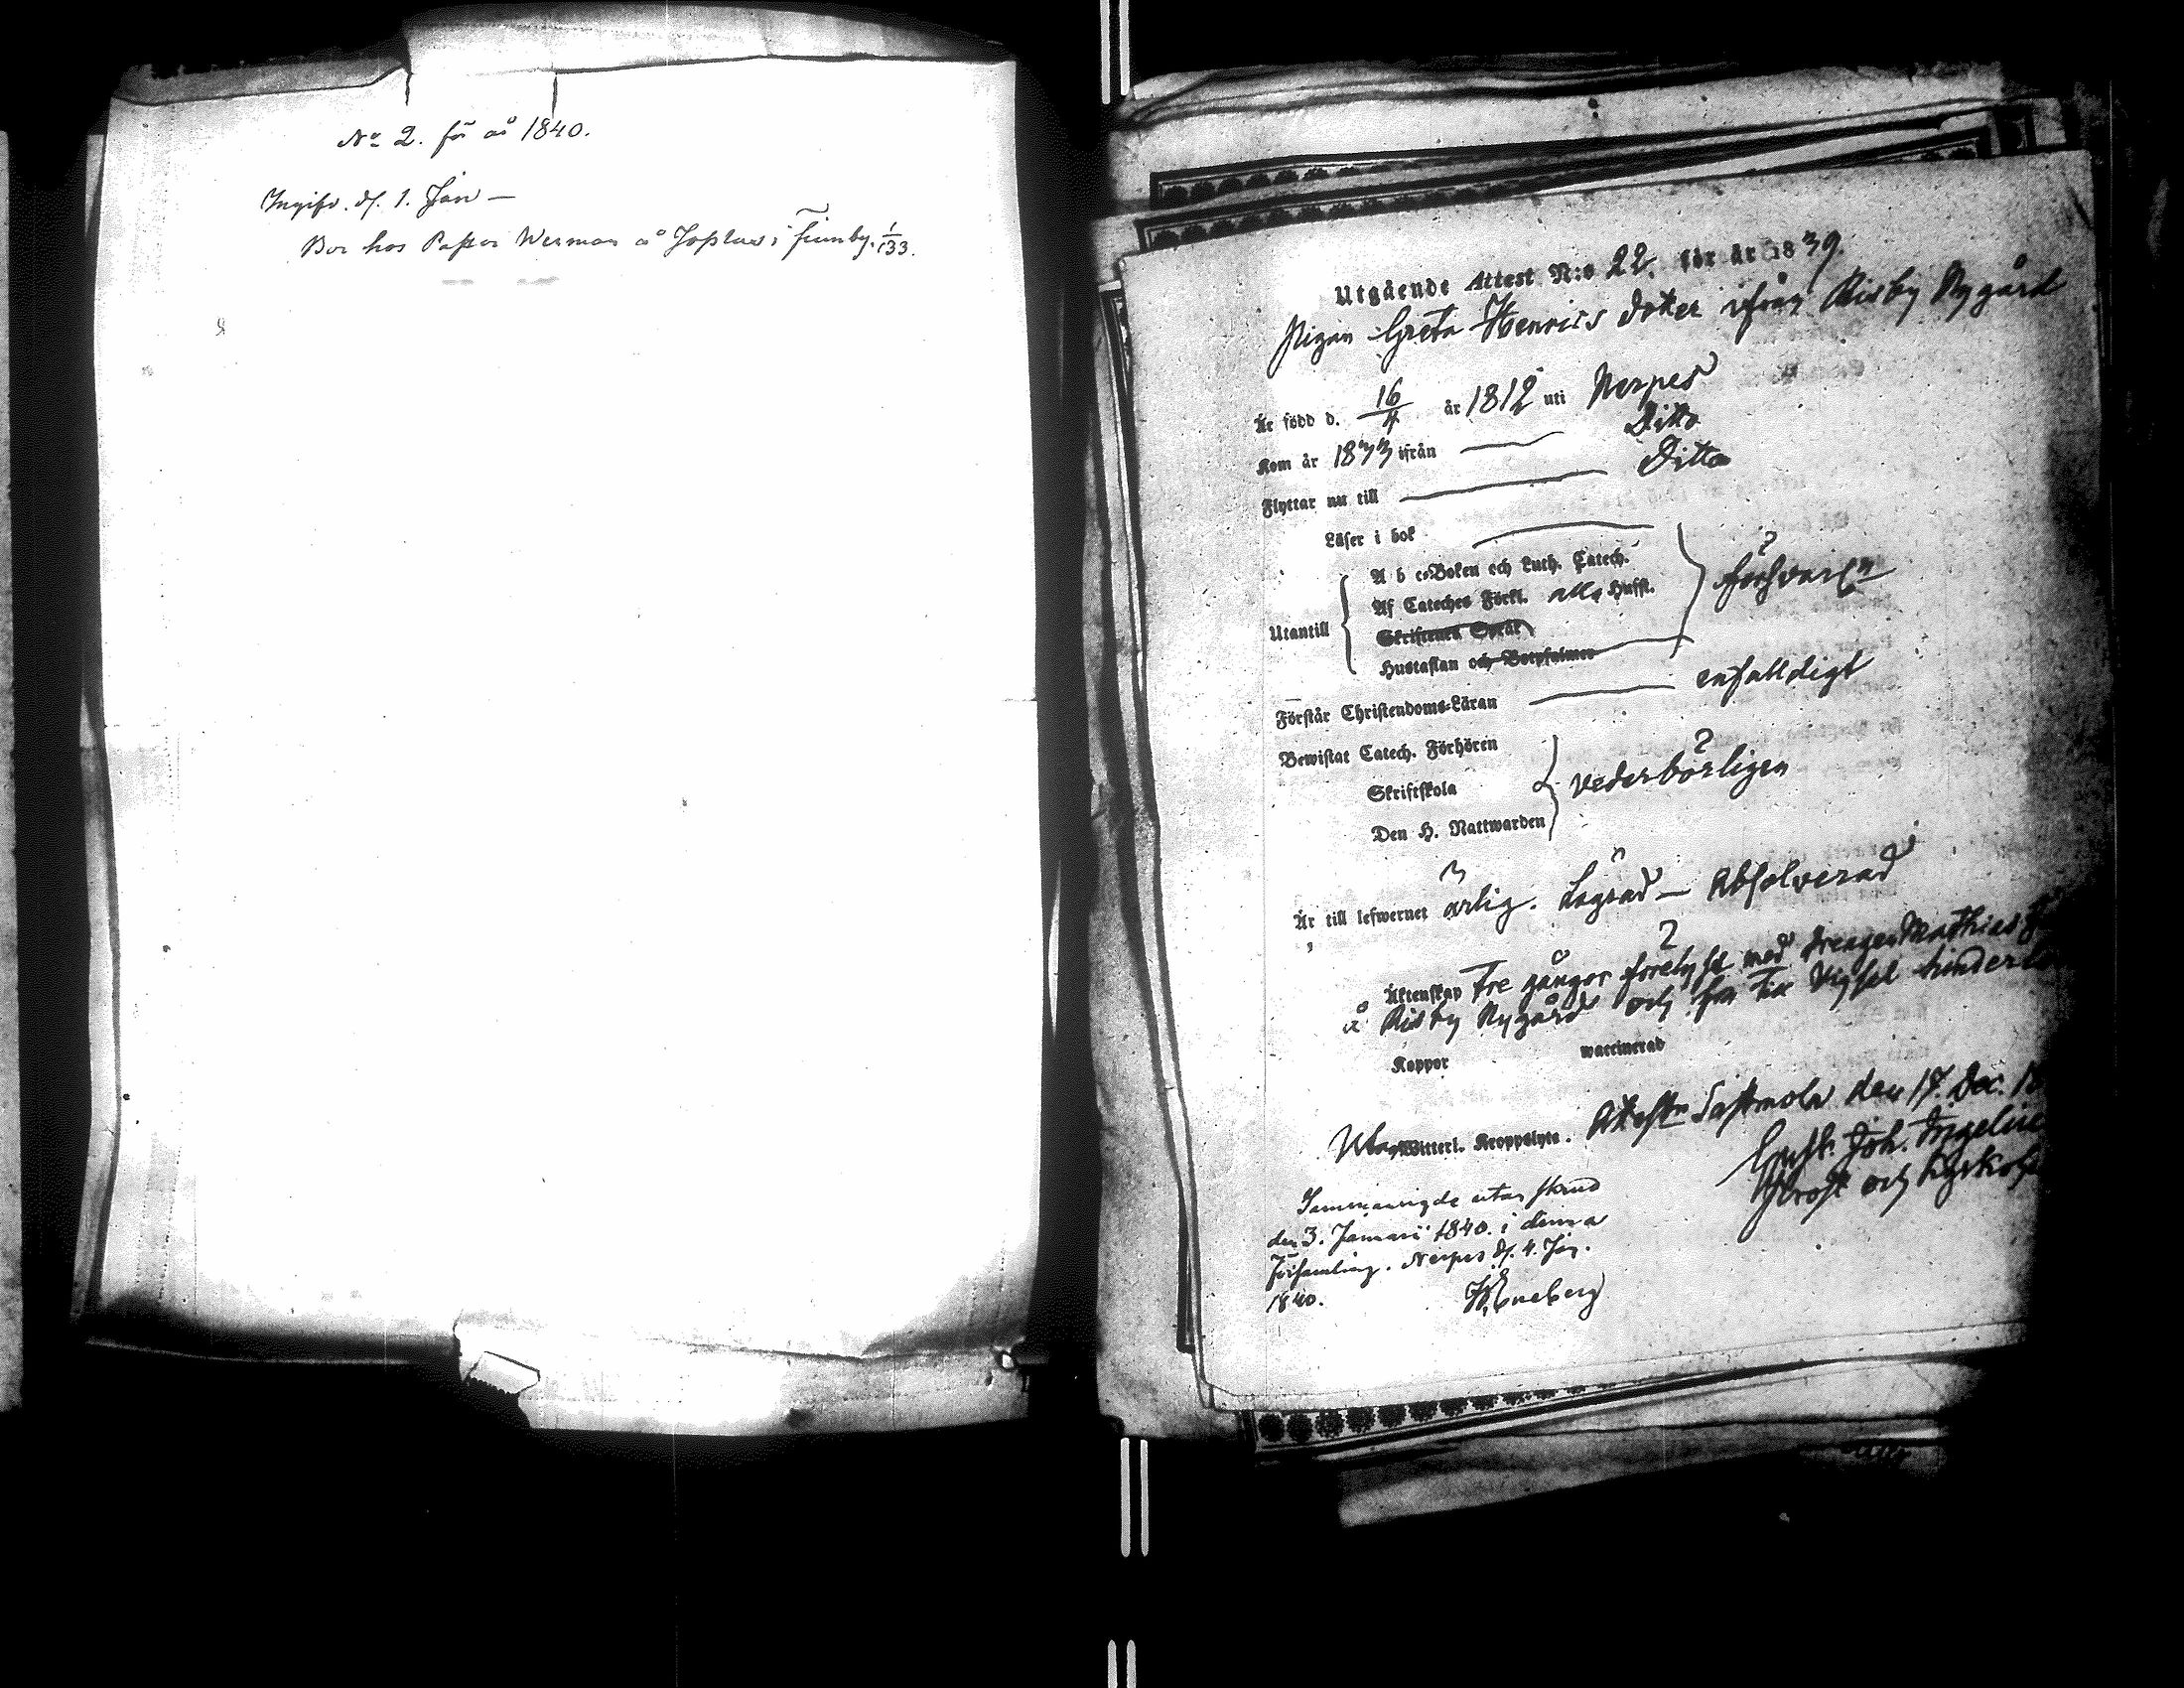 No 2. för år 1840.
Ingifv. d. 1. Jan —
Bor hos Pastor Werman å Joplax i Finby. 1/133.
Utgående Attest N:o 22. för år 1839.
Pigan Greta Henrics dotter ifrån Risby Nygård
Är född d. 16/4 år 1812 uti Nerpes
Kom år 1833 ifrån — Ditto
Flyttar nu till — Ditto
Läser i bok
A b c-Boken och Luth. Catech.
Af Cateches Förkl. alla Husst.
Utantill försvarl:n
Skriftenes Språk
Hustaflan och Botpsalmer
Förstår Christendoms-Läran — enfalldigt
Bewistat Catech. Förhören
Skriftskola vederbörligen
Den H. Nattwarden
Är till lefwernet ärlig. Lägrad — Absolverad
Äktenskap Tre gångor förelyst med drengen Mathias
å Risby Nygård och får till Vigsel
Koppor waccinerad
Utan Witterl. Kroppslyte. Attest:n Sastmola den 17. Dec. 18
Gust. Joh.
Prost och Kyrkoh
Sammanvigde utan skrud
den 3. Januari 1840. i denna
Församling. Nerpes d. 4. Jan.
1840.